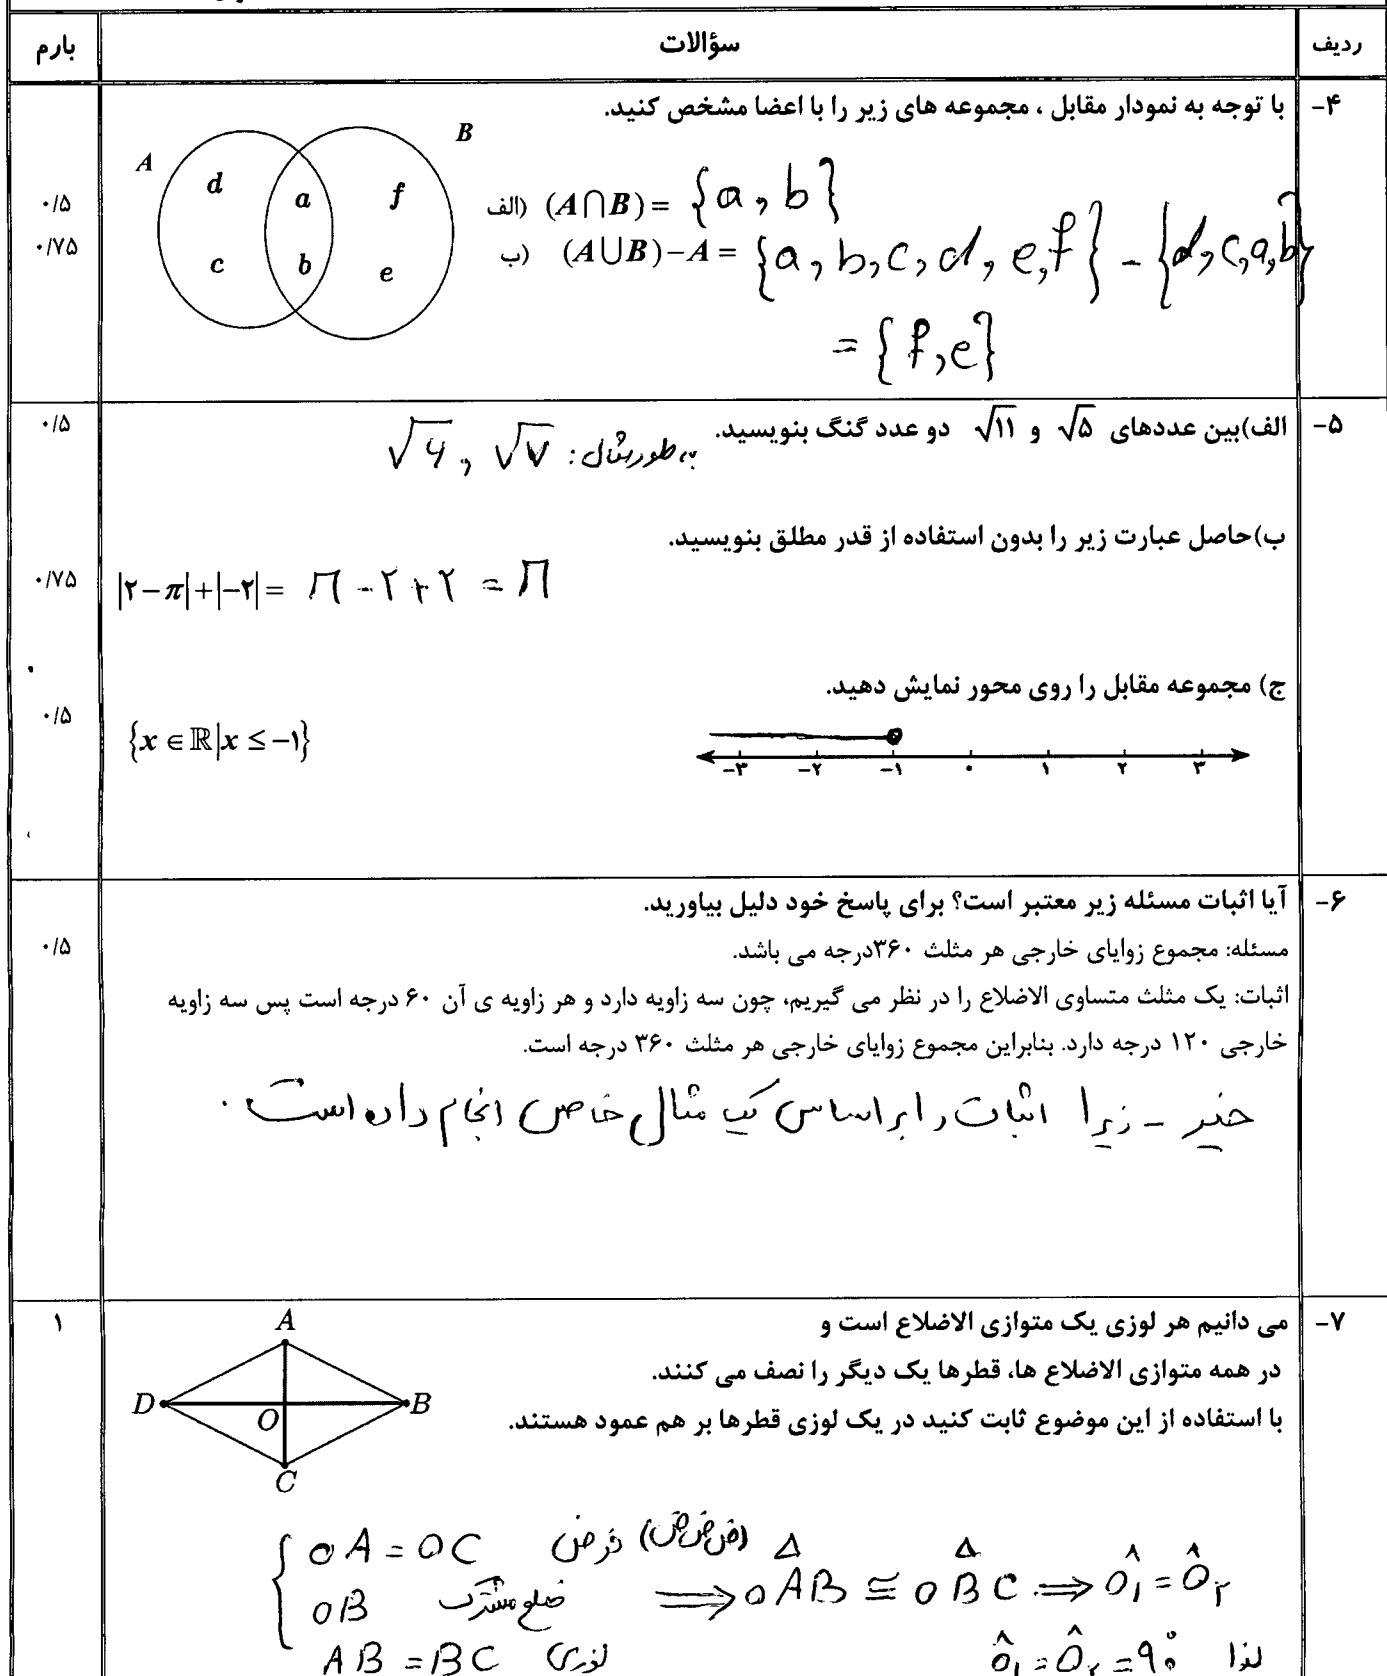 ردیف سؤالات بارم
۴- با توجه به نمودار مقابل ، مجموعه های زیر را با اعضا مشخص کنید.
A B
d a f
c b e
الف) (A∩B) = {a , b} ۰/۵
ب) (A∪B) − A = {a , b, c, d, e, f} − {d, c, a, b} ۰/۷۵
= {f, e}
۵- الف)بین عددهای √۵ و √۱۱ دو عدد گنگ بنویسید. به طور مثال : √۷ , √۶ ۰/۵
ب)حاصل عبارت زیر را بدون استفاده از قدر مطلق بنویسید.
|۲−π|+|−۲| = π − ۲ + ۲ = π ۰/۷۵
ج) مجموعه مقابل را روی محور نمایش دهید.
{x ∈ ℝ|x ≤ −۱} ۰/۵
−۳ −۲ −۱ ۰ ۱ ۲ ۳
۶- آیا اثبات مسئله زیر معتبر است؟ برای پاسخ خود دلیل بیاورید.
مسئله: مجموع زوایای خارجی هر مثلث ۳۶۰درجه می باشد. ۰/۵
اثبات: یک مثلث متساوی الاضلاع را در نظر می گیریم، چون سه زاویه دارد و هر زاویه ی آن ۶۰ درجه است پس سه زاویه
خارجی ۱۲۰ درجه دارد. بنابراین مجموع زوایای خارجی هر مثلث ۳۶۰ درجه است.
خیر - زیرا اثبات را براساس یک مثال خاص انجام داده است .
۷- می دانیم هر لوزی یک متوازی الاضلاع است و ۱
در همه متوازی الاضلاع ها، قطرها یک دیگر را نصف می کنند.
با استفاده از این موضوع ثابت کنید در یک لوزی قطرها بر هم عمود هستند.
A
D O B
C
OA = OC فرض (ض ض ض)
OB ضلع مشترک ⟹ OAB ≅ OBC ⟹ Ô₁ = Ô₂
AB = BC لوزی لذا Ô₁ = Ô₂ = ۹۰°